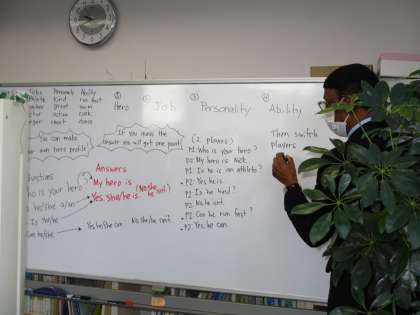 Jobs Personality Ability
kind run fast
great swim
active cook
smart dance
① Hero
② Job
③ Personality
④ Ability
You can make
your own hero profile
If you guess the
answer you will get one point!
Questions
who is your hero? (S)
Is he/she a/an
Is she/he
Can he/she
Answers
My hero is
Yes. She/he is. (No she he isn't.)
Yes he/she can No she/he can't.
(2 players)
P1: Who is your hero?
P2: My hero is Nick.
P1: Is he is an athlete?
P2: Yes he is.
P1: Is he kind?
P2: No he isn't.
P1: Can he run fast?
P2: Yes, he can.
Then switch
Players